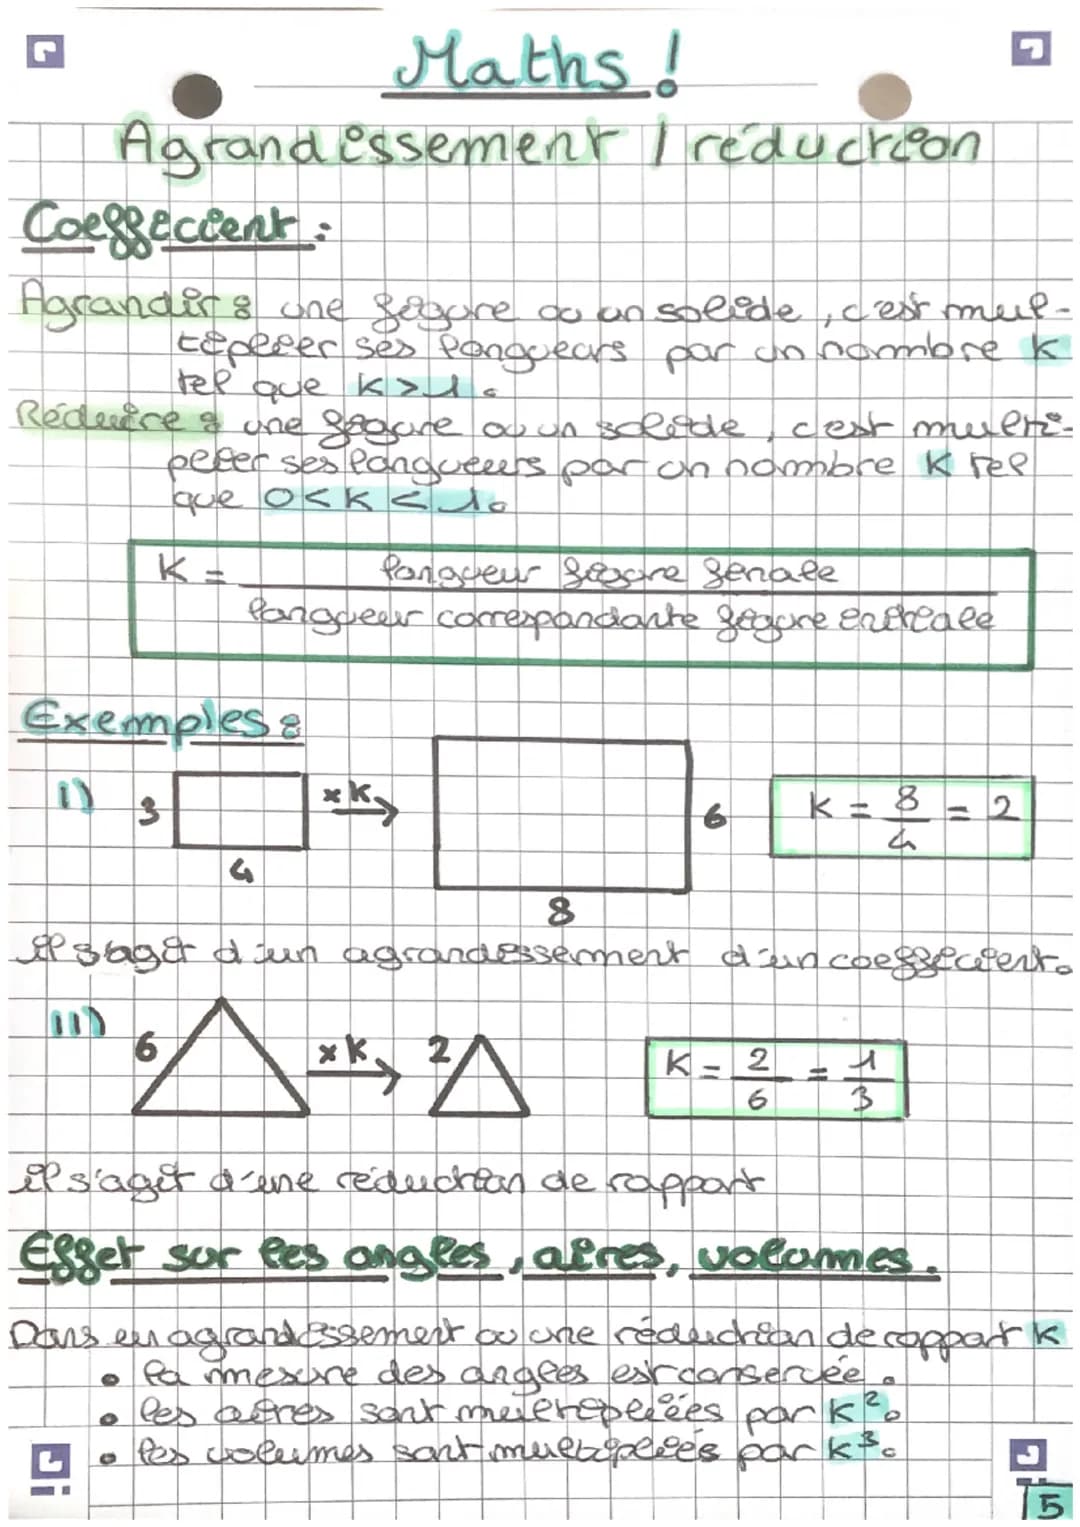 Maths !
Agrandissement / réduction
Coefficient :
Agrandir : une figure ou un solide, c'est mul-
tiplier ses longueurs par un nombre K
tel que K > 1.
Réduire : une figure ou un solide, c'est multi-
plier ses longueurs par un nombre K tel
que 0 < K < 1.
K = longueur figure finale
longueur correspondante figure initiale
Exemples :
I) 3 x K 6 K = 8/4 = 2
4
8
il s'agit d'un agrandissement d'un coefficient.
II) 6 x K 2 K = 2/6 = 1/3
il s'agit d'une réduction de rapport
Effet sur les angles, aires, volumes.
Dans un agrandissement ou une réduction de rapport K
• la mesure des angles est conservée.
• les aires sont multipliées par K².
• les volumes sont multipliés par K³.
5